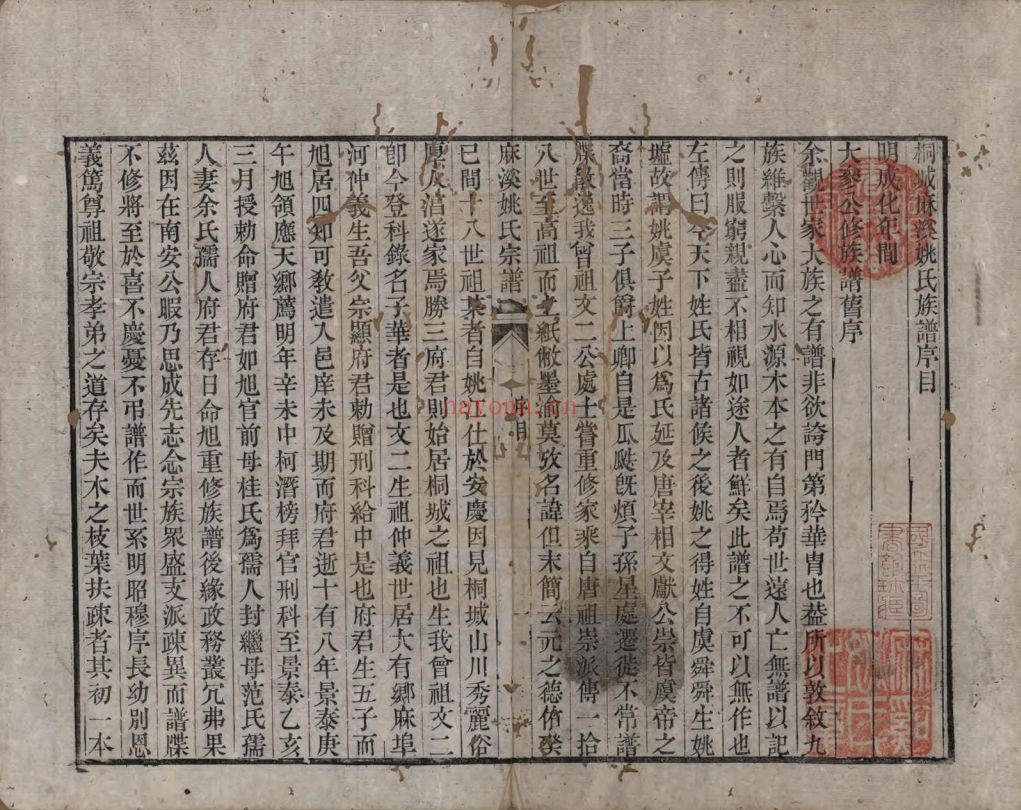 桐城麻溪姚氏族譜序目
明成化年間
大參公修族譜舊序
余觀世家大族之有譜非欲誇門第矜華胄也葢所以敦敘九
族維繫人心而知水源木本之有自焉苟世遠人亡無譜以記
之則服窮親盡不相視如途人者鮮矣此譜之不可以無作也
左傳曰今天下姓氏皆古諸候之後姚之得姓自虞舜舜生姚
墟故謂姚虞子姓因以爲氏延及唐宰相文獻公崇皆虞帝之
裔當時三子俱爵上卿自是瓜瓞旣煩子孫星處遷徙不常譜
牒散逸我曾祖文二公處士嘗重修家乘自唐祖崇派傳一拾
八世至高祖而之紙敝墨渝莫攷名諱但末簡云元之德脩癸
麻溪姚氏宗譜
序目
巳間十八世祖某者自姚江仕於安慶因見桐城山川秀麗俗
厚人淯遂家焉勝三府君則始居桐城之祖也生我曾祖文二
卽今登科錄名子華者是也文二生祖仲義世居大有鄉麻埠
河仲義生吾父宗顯府君勅贈刑科給中是也府君生五子而
旭居四知可敎遣入邑庠未及期而府君逝十有八年景泰庚
午旭領應天鄉薦明年辛未中柯潛榜拜官刑科至景泰乙亥
三月授勅命贈府君如旭官前母桂氏爲孺人封繼母范氏孺
人妻余氏孺人府君存日命旭重修族譜後緣政務叢冗弗果
茲因在南安公暇乃思成先志念宗族眾盛支派疎異而譜牒
不修將至於喜不慶憂不弔譜作而世系明昭穆序長幼別恩
義篤尊祖敬宗孝弟之道存矣夫木之枝葉扶疎者其初一本
hayoou.cn